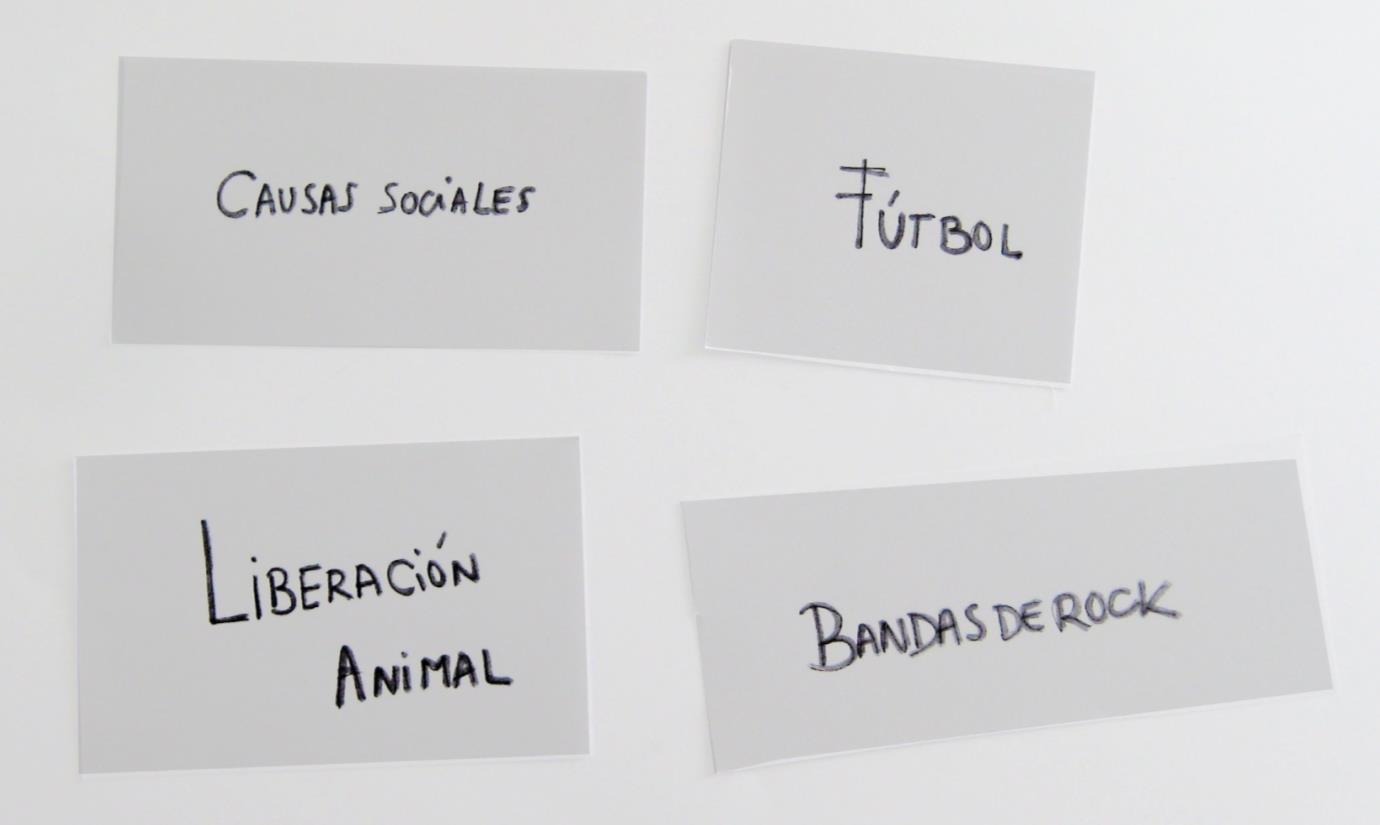 Causas sociales
Fútbol
Liberación
Animal
Bandas de rock